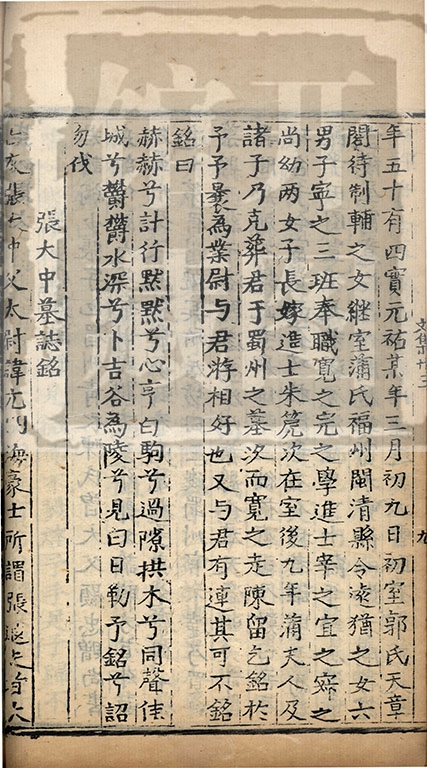 年五十有四實元祐某年三月初九日初室郭氏天章
閣待制輔之女継室蒲氏福州閩清縣令遠猶之女六
男子寧之三班奉職寛之完之學進士宰之宜之寀之
尚幼两女子長嫁進士朱箎次在室後九年蒲夫人及
諸子乃克葬君于蜀州之墓次而寛之走陳留乞銘於
予予曩為葉尉与君游相好也又与君有連其可不銘
銘曰
赫赫兮計行黙黙兮心亨白駒兮過隙拱木兮同聲佳
城兮欝欝水深兮卜吉谷為陵兮見白日勒予銘兮詔
勿伐
張大中墓誌銘
張大中父太尉諱元 海豪士所謂張